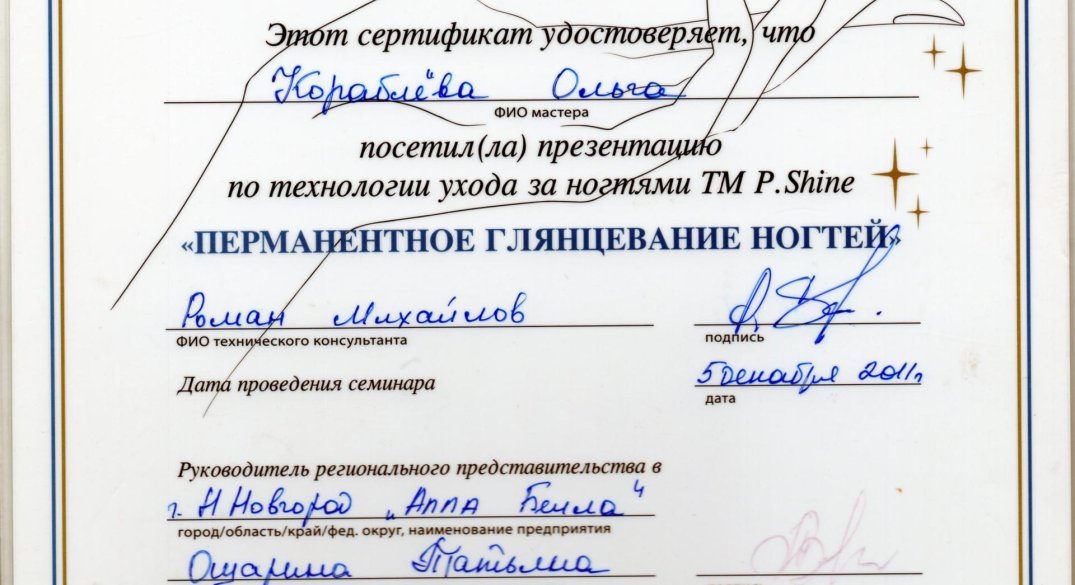 Этот сертификат удостоверяет, что
Кораблёва Ольга
ФИО мастера
посетил(ла) презентацию
по технологии ухода за ногтями ТМ P.Shine
«ПЕРМАНЕНТНОЕ ГЛЯНЦЕВАНИЕ НОГТЕЙ»
Роман Михайлов
ФИО технического консультанта
подпись
Дата проведения семинара
5 декабря 2011г
дата
Руководитель регионального представительства в
г. Н Новгород „Алла Белла"
город/область/край/фед. округ, наименование предприятия
Ощарина Татьяна